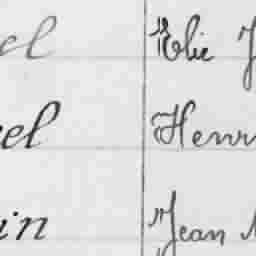 el Elie J
el Henr
in Jean